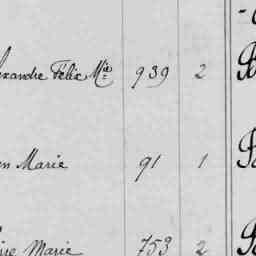 exandre Félix Mie 939 2
en Marie 91 1
ire Marie 753 2